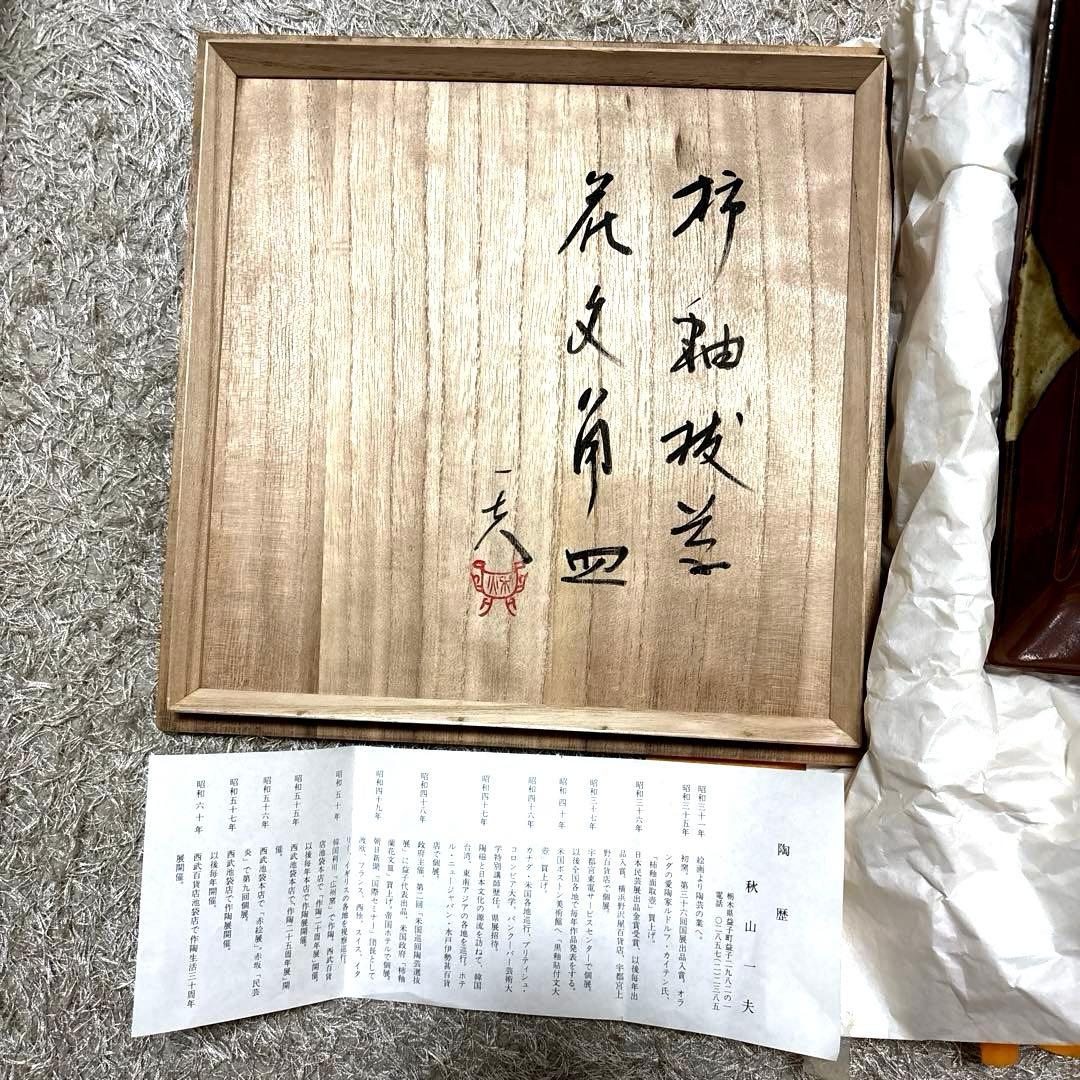 柿釉抜蘭
花文角皿
一夫
陶歴
秋山一夫
栃木県益子町益子二九八二の一
電話 〇二八五七(二)二三八五
昭和三十一年 絵画より陶芸の業へ。
昭和三十五年 初窯。第三十六回国展出品入賞、オラ
ンダの愛陶家ルドルフ・カイテン氏、
「柿釉面取壺」買上げ。
昭和三十六年 日本民芸展出品金賞受賞、以後毎年出
品入賞。横浜野沢屋百貨店、宇都宮上
野百貨店で個展。
昭和三十七年 宇都宮東電サービスセンターで個展。
以後全国各地で毎年作品発表をする。
昭和四十年 米国ボストン美術館へ「黒釉貼付文大
壺」買上げ。
昭和四十六年 カナダ・米国各地巡行、ブリティシュ・
コロンビア大学、バンクーバー芸術大
学特別講師歴任。県展招待。
昭和四十七年 陶磁と日本文化の源流を訪ねて、韓国
台湾、東南アジアの各地を巡行。ホテ
ル・ニュージャパン・水戸伊勢甚百貨
店で個展。
昭和四十八年 政府主催、第二回「米国巡回陶芸選抜
展」に益子代表出品。米国政府「柿釉
蘭花文皿」買上げ。帝国ホテルで個展。
昭和四十九年 朝日新聞「国際セミナー」団長として
渡欧、フランス、西独、スイス、イタ
リー、イギリスの各地を視察巡行。
昭和五十年 韓国利川、「広州窯」で作陶。西武百貨
店池袋本店で「作陶二十周年展」開催。
以後毎年本店で作陶展開催。
昭和五十五年 西武池袋本店で、「作陶二十五周年展」開
催。
昭和五十六年 西武池袋本店で「赤絵展」赤坂「民芸
炎」で第九回個展。
昭和五十七年 西武池袋店で作陶展開催。
以後毎年開催。
昭和六十年 西武百貨店池袋店で作陶生活三十周年
展開催。